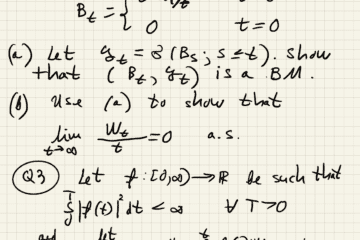 B_t = {
0 t=0
(a) Let 𝒢_t = σ(B_s ; s≤t). show
that (B_t, 𝒢_t) is a BM.
(b) Use (a) to show that
lim_{t→∞} W_t/t = 0 a.s.
Q3 Let f : [0,∞) → ℝ be such that
∫_0^T |f(t)|² dt < ∞ ∀ T>0
and let